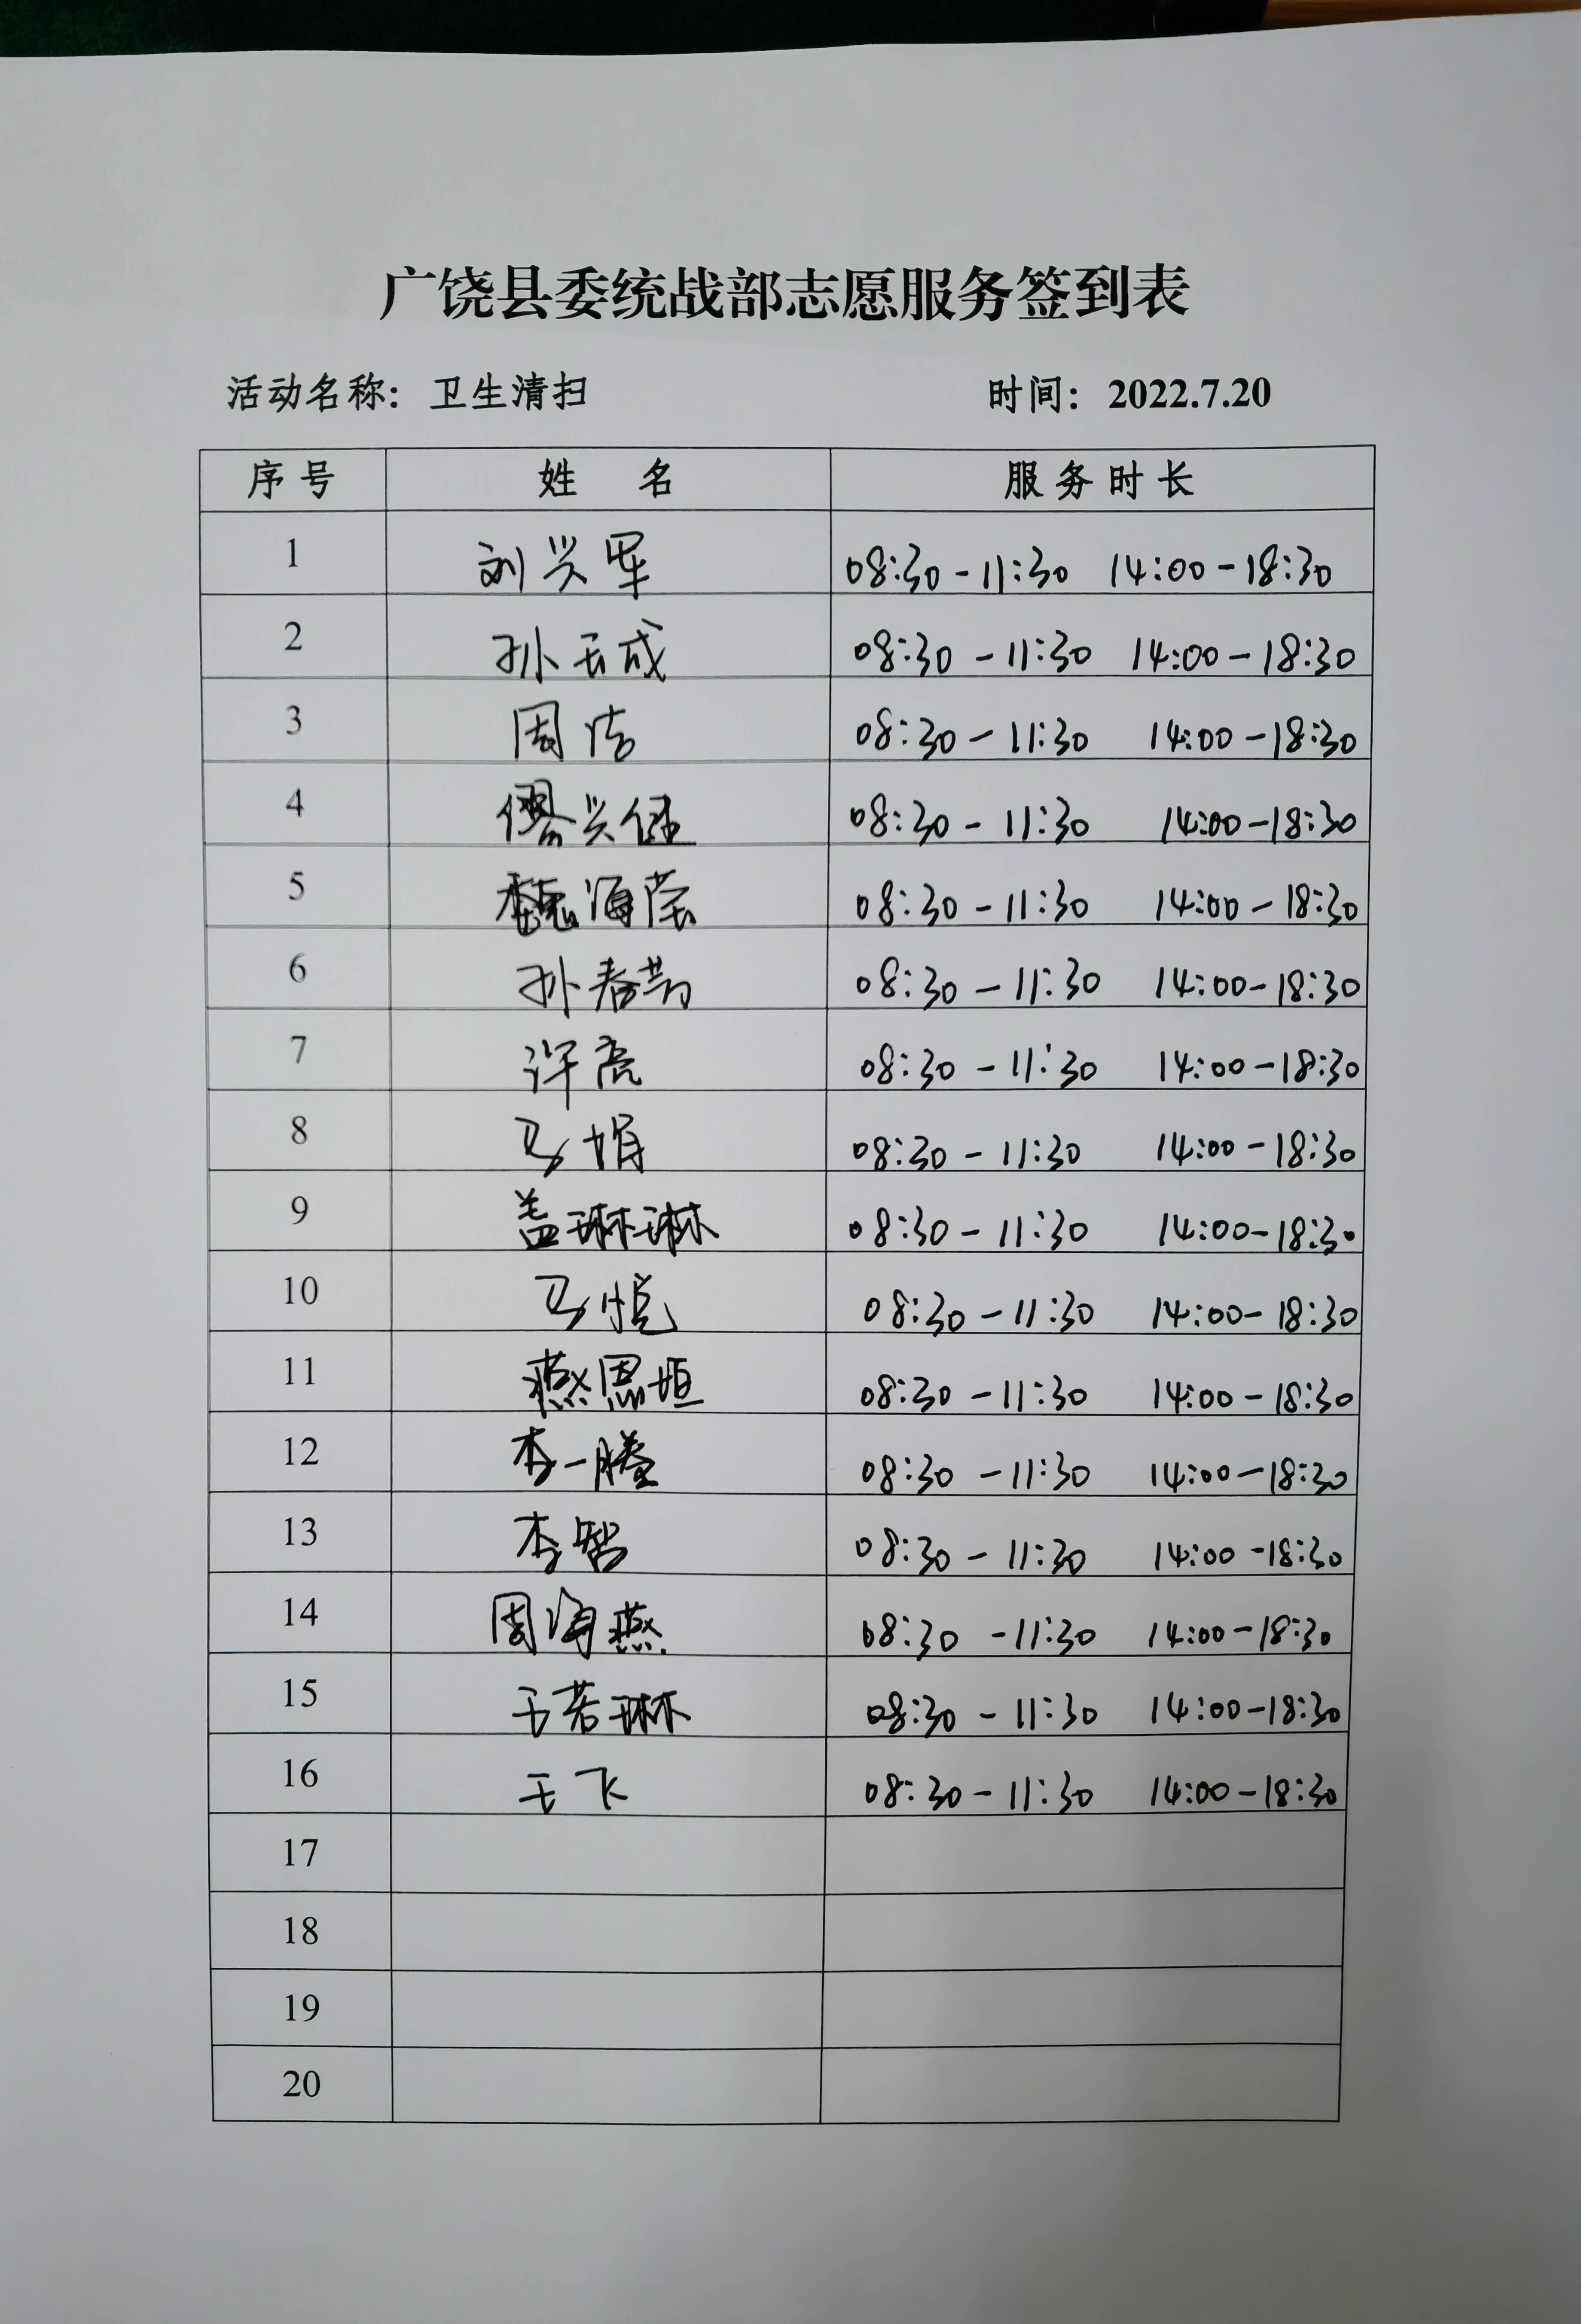 广饶县委统战部志愿服务签到表
活动名称：卫生清扫 时间：2022.7.20
序号 姓 名 服务时长
1 刘兴军 08:30-11:30 14:00-18:30
2 孙玉成 08:30-11:30 14:00-18:30
3 周洁 08:30-11:30 14:00-18:30
4 兴 08:30-11:30 14:00-18:30
5 魏海莹 08:30-11:30 14:00-18:30
6 孙春芳 08:30-11:30 14:00-18:30
7 许亮 08:30-11:30 14:00-18:30
8 马娟 08:30-11:30 14:00-18:30
9 盖琳琳 08:30-11:30 14:00-18:30
10 马悦 08:30-11:30 14:00-18:30
11 燕恩垣 08:30-11:30 14:00-18:30
12 李一腾 08:30-11:30 14:00-18:30
13 李智 08:30-11:30 14:00-18:30
14 周海燕 08:30-11:30 14:00-18:30
15 王若琳 08:30-11:30 14:00-18:30
16 王飞 08:30-11:30 14:00-18:30
17
18
19
20